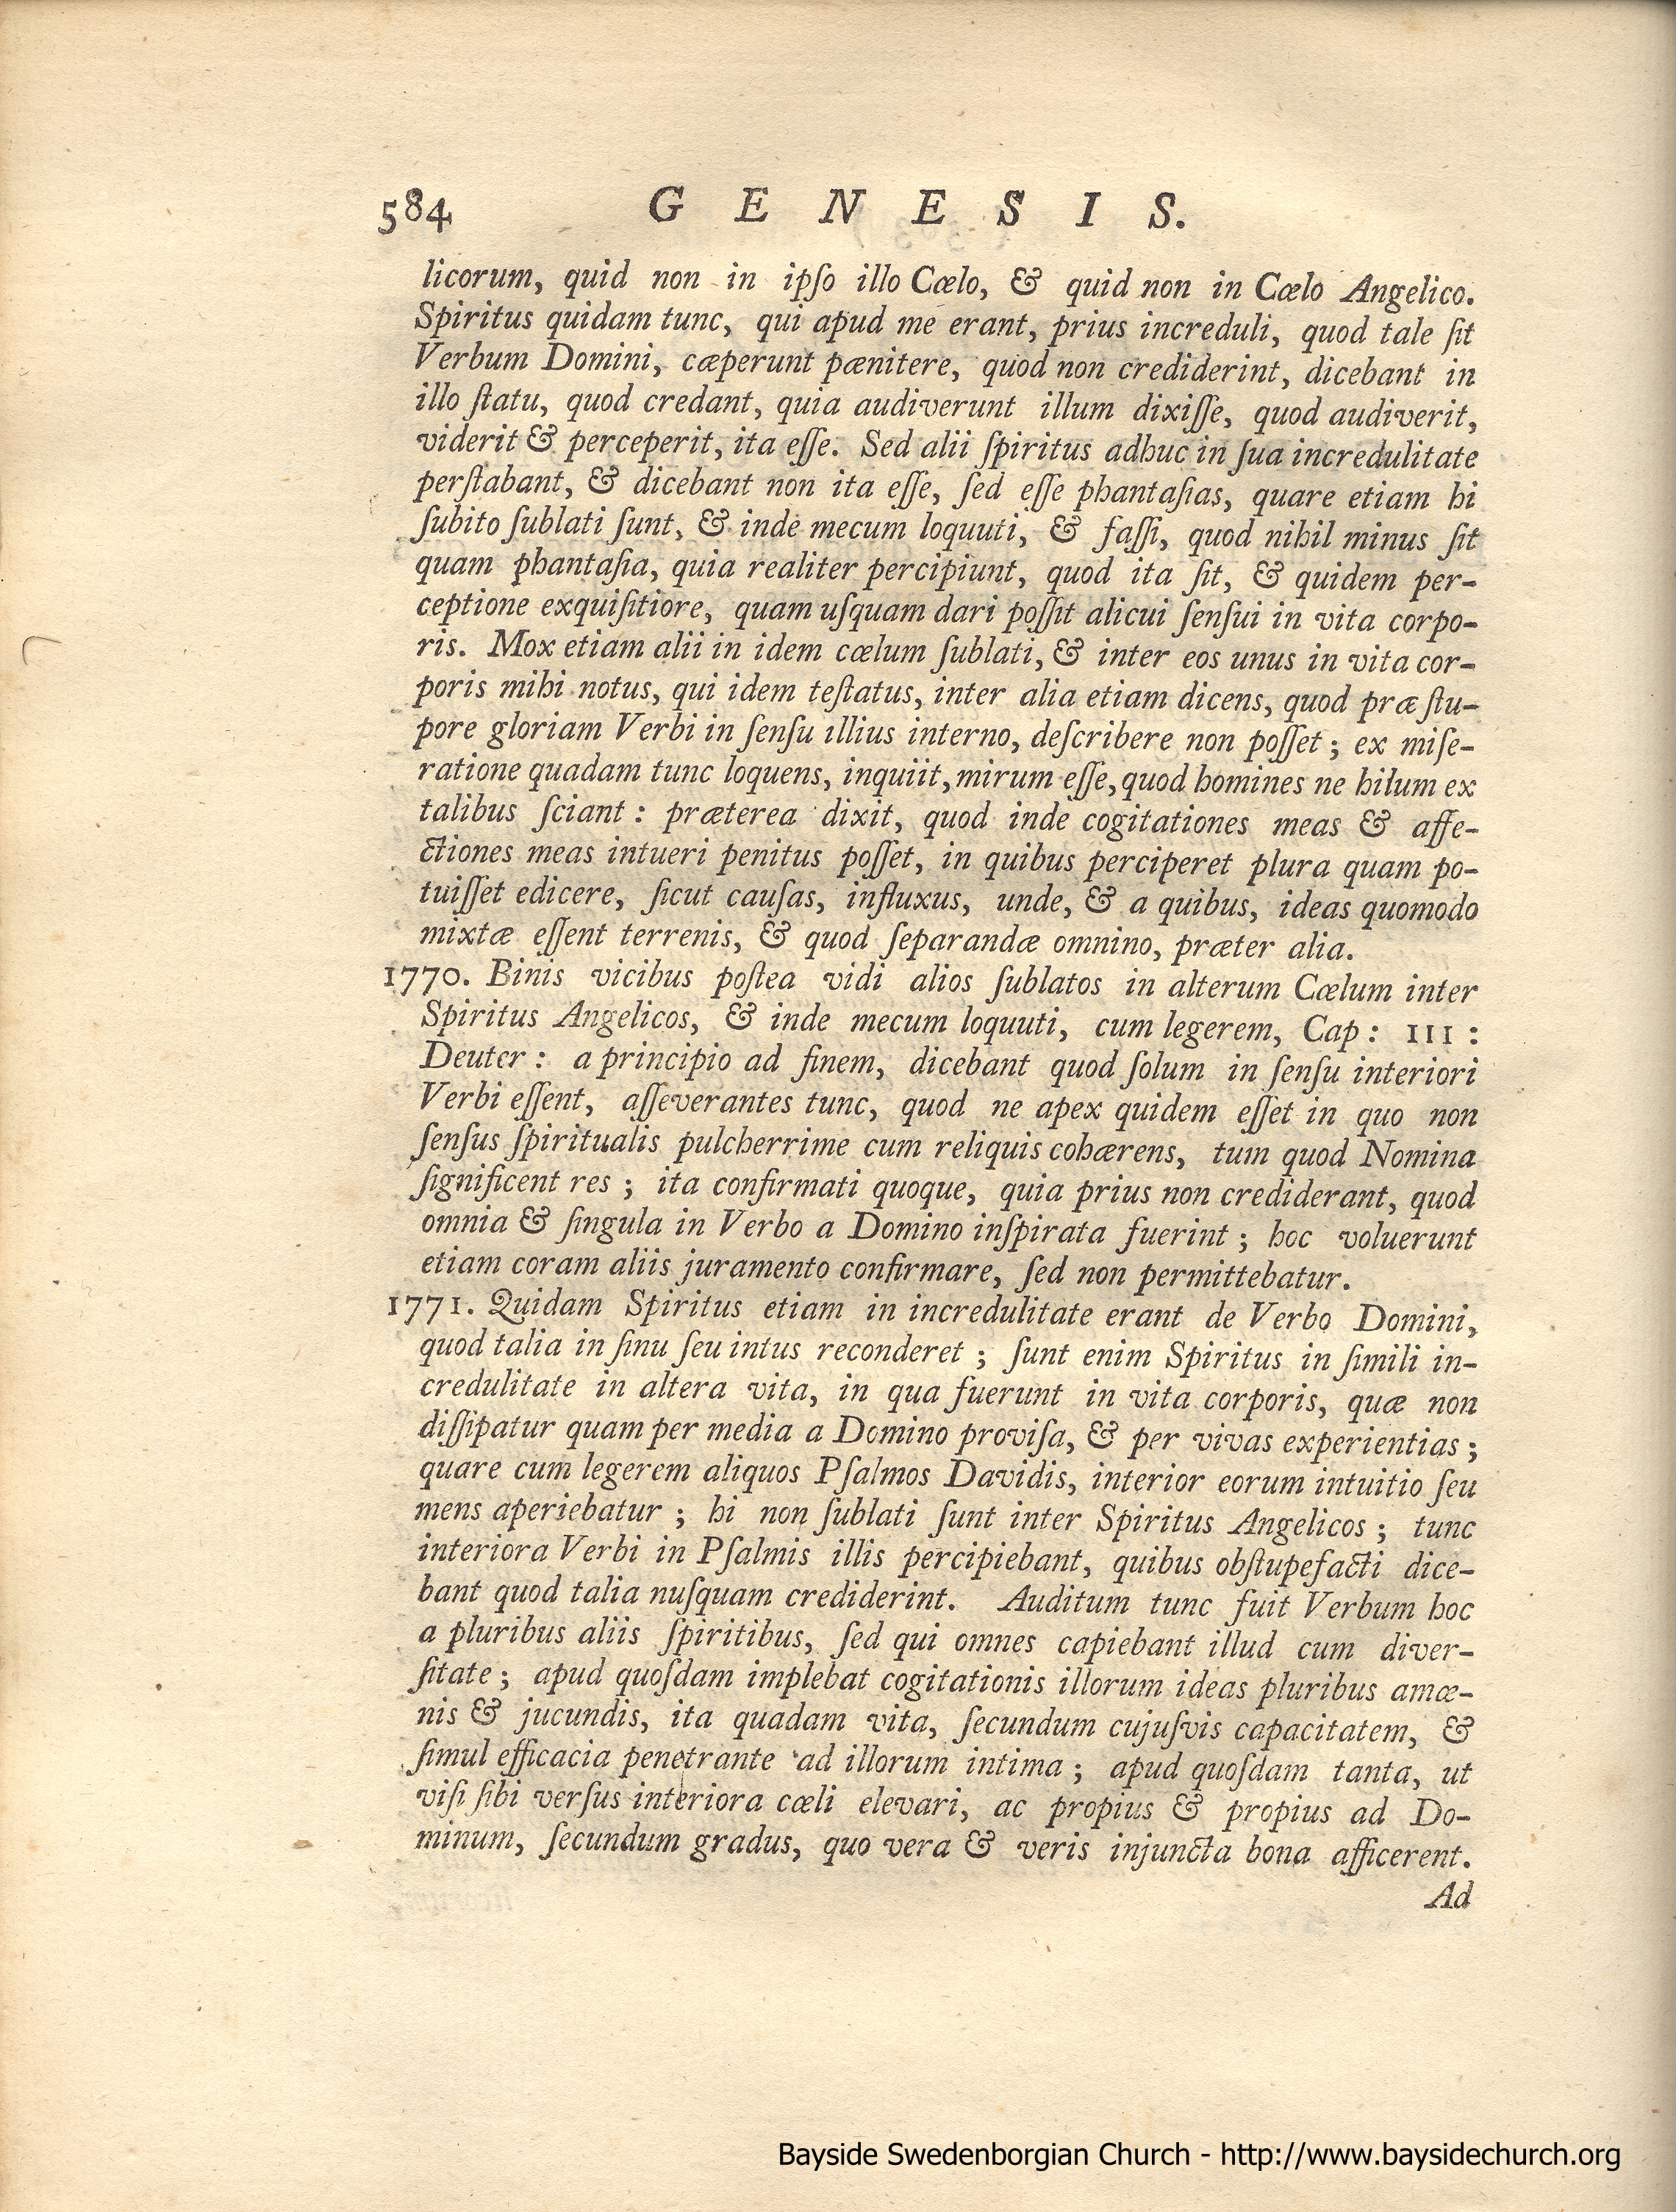 584 GENESIS.
licorum, quid non in ipſo illo Cœlo, & quid non in Cœlo Angelico.
Spiritus quidam tunc, qui apud me erant, prius increduli, quod tale ſit
Verbum Domini, cæperunt pænitere, quod non crediderint, dicebant in
illo ſtatu, quod credant, quia audiverunt illum dixiſſe, quod audiverit,
viderit & perceperit, ita eſſe. Sed alii ſpiritus adhuc in ſua incredulitate
perſtabant, & dicebant non ita eſſe, ſed eſſe phantaſias, quare etiam hi
ſubito ſublati ſunt, & inde mecum loquuti, & faſſi, quod nihil minus ſit
quam phantaſia, quia realiter percipiunt, quod ita ſit, & quidem per-
ceptione exquiſitiore, quam uſquam dari poſſit alicui ſenſui in vita corpo-
ris. Mox etiam alii in idem cœlum ſublati, & inter eos unus in vita cor-
poris mihi notus, qui idem teſtatus, inter alia etiam dicens, quod præ ſtu-
pore gloriam Verbi in ſenſu illius interno, deſcribere non poſſet; ex miſe-
ratione quadam tunc loquens, inquiit, mirum eſſe, quod homines ne hilum ex
talibus ſciant: præterea dixit, quod inde cogitationes meas & affe-
ctiones meas intueri penitus poſſet, in quibus perciperet plura quam po-
tuiſſet edicere, ſicut cauſas, influxus, unde, & a quibus, ideas quomodo
mixtæ eſſent terrenis, & quod ſeparandæ omnino, præter alia.
1770. Binis vicibus poſtea vidi alios ſublatos in alterum Cœlum inter
Spiritus Angelicos, & inde mecum loquuti, cum legerem, Cap: III:
Deuter: a principio ad finem, dicebant quod ſolum in ſenſu interiori
Verbi eſſent, aſſeverantes tunc, quod ne apex quidem eſſet in quo non
ſenſus ſpiritualis pulcherrime cum reliquis cohærens, tum quod Nomina
ſignificent res; ita confirmati quoque, quia prius non crediderant, quod
omnia & ſingula in Verbo a Domino inſpirata fuerint; hoc voluerunt
etiam coram aliis juramento confirmare, ſed non permittebatur.
1771. Quidam Spiritus etiam in incredulitate erant de Verbo Domini,
quod talia in ſinu ſeu intus reconderet; ſunt enim Spiritus in ſimili in-
credulitate in altera vita, in qua fuerunt in vita corporis, quæ non
diſſipatur quam per media a Domino proviſa, & per vivas experientias;
quare cum legerem aliquos Pſalmos Davidis, interior eorum intuitio ſeu
mens aperiebatur; hi non ſublati ſunt inter Spiritus Angelicos; tunc
interiora Verbi in Pſalmis illis percipiebant, quibus obſtupefacti dice-
bant quod talia nuſquam crediderint. Auditum tunc fuit Verbum hoc
a pluribus aliis ſpiritibus, ſed qui omnes capiebant illud cum diver-
ſitate; apud quoſdam implebat cogitationis illorum ideas pluribus amœ-
nis & jucundis, ita quadam vita, ſecundum cujuſvis capacitatem, &
ſimul efficacia penetrante ad illorum intima; apud quoſdam tanta, ut
viſi ſibi verſus interiora cœli elevari, ac propius & propius ad Do-
minum, ſecundum gradus, quo vera & veris injuncta bona afficerent.
Ad
Bayside Swedenborgian Church - http://www.baysidechurch.org